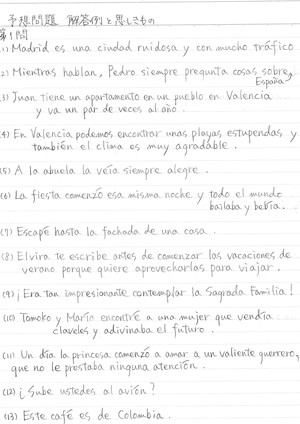 予想問題 解答例と思しきもの
第1問
(1) Madrid es una ciudad ruidosa y con mucho tráfico
(2) Mientras hablan, Pedro siempre pregunta cosas sobre
España
(3) Juan tiene un apartamento en un pueblo en Valencia
y va un par de veces al año.
(4) En Valencia podemos encontrar unas playas estupendas y
también el clima es muy agradable.
(5) A la abuela la veía siempre alegre.
(6) La fiesta comenzó esa misma noche y todo el mundo
bailaba y bebía.
(7) Escapé hasta la fachada de una casa.
(8) Elvira te escribe antes de comenzar las vacaciones de
verano porque quiere aprovecharlas para viajar.
(9) ¡Era tan impresionante contemplar la Sagrada Familia!
(10) Tomoko y Mario encontré a una mujer que vendía
claveles y adivinaba el futuro.
(11) Un día la princesa comenzó a amar a un valiente guerrero,
que no le prestaba ninguna atención.
(12) ¿Sube ustedes al avión?
(13) Este café es de Colombia.